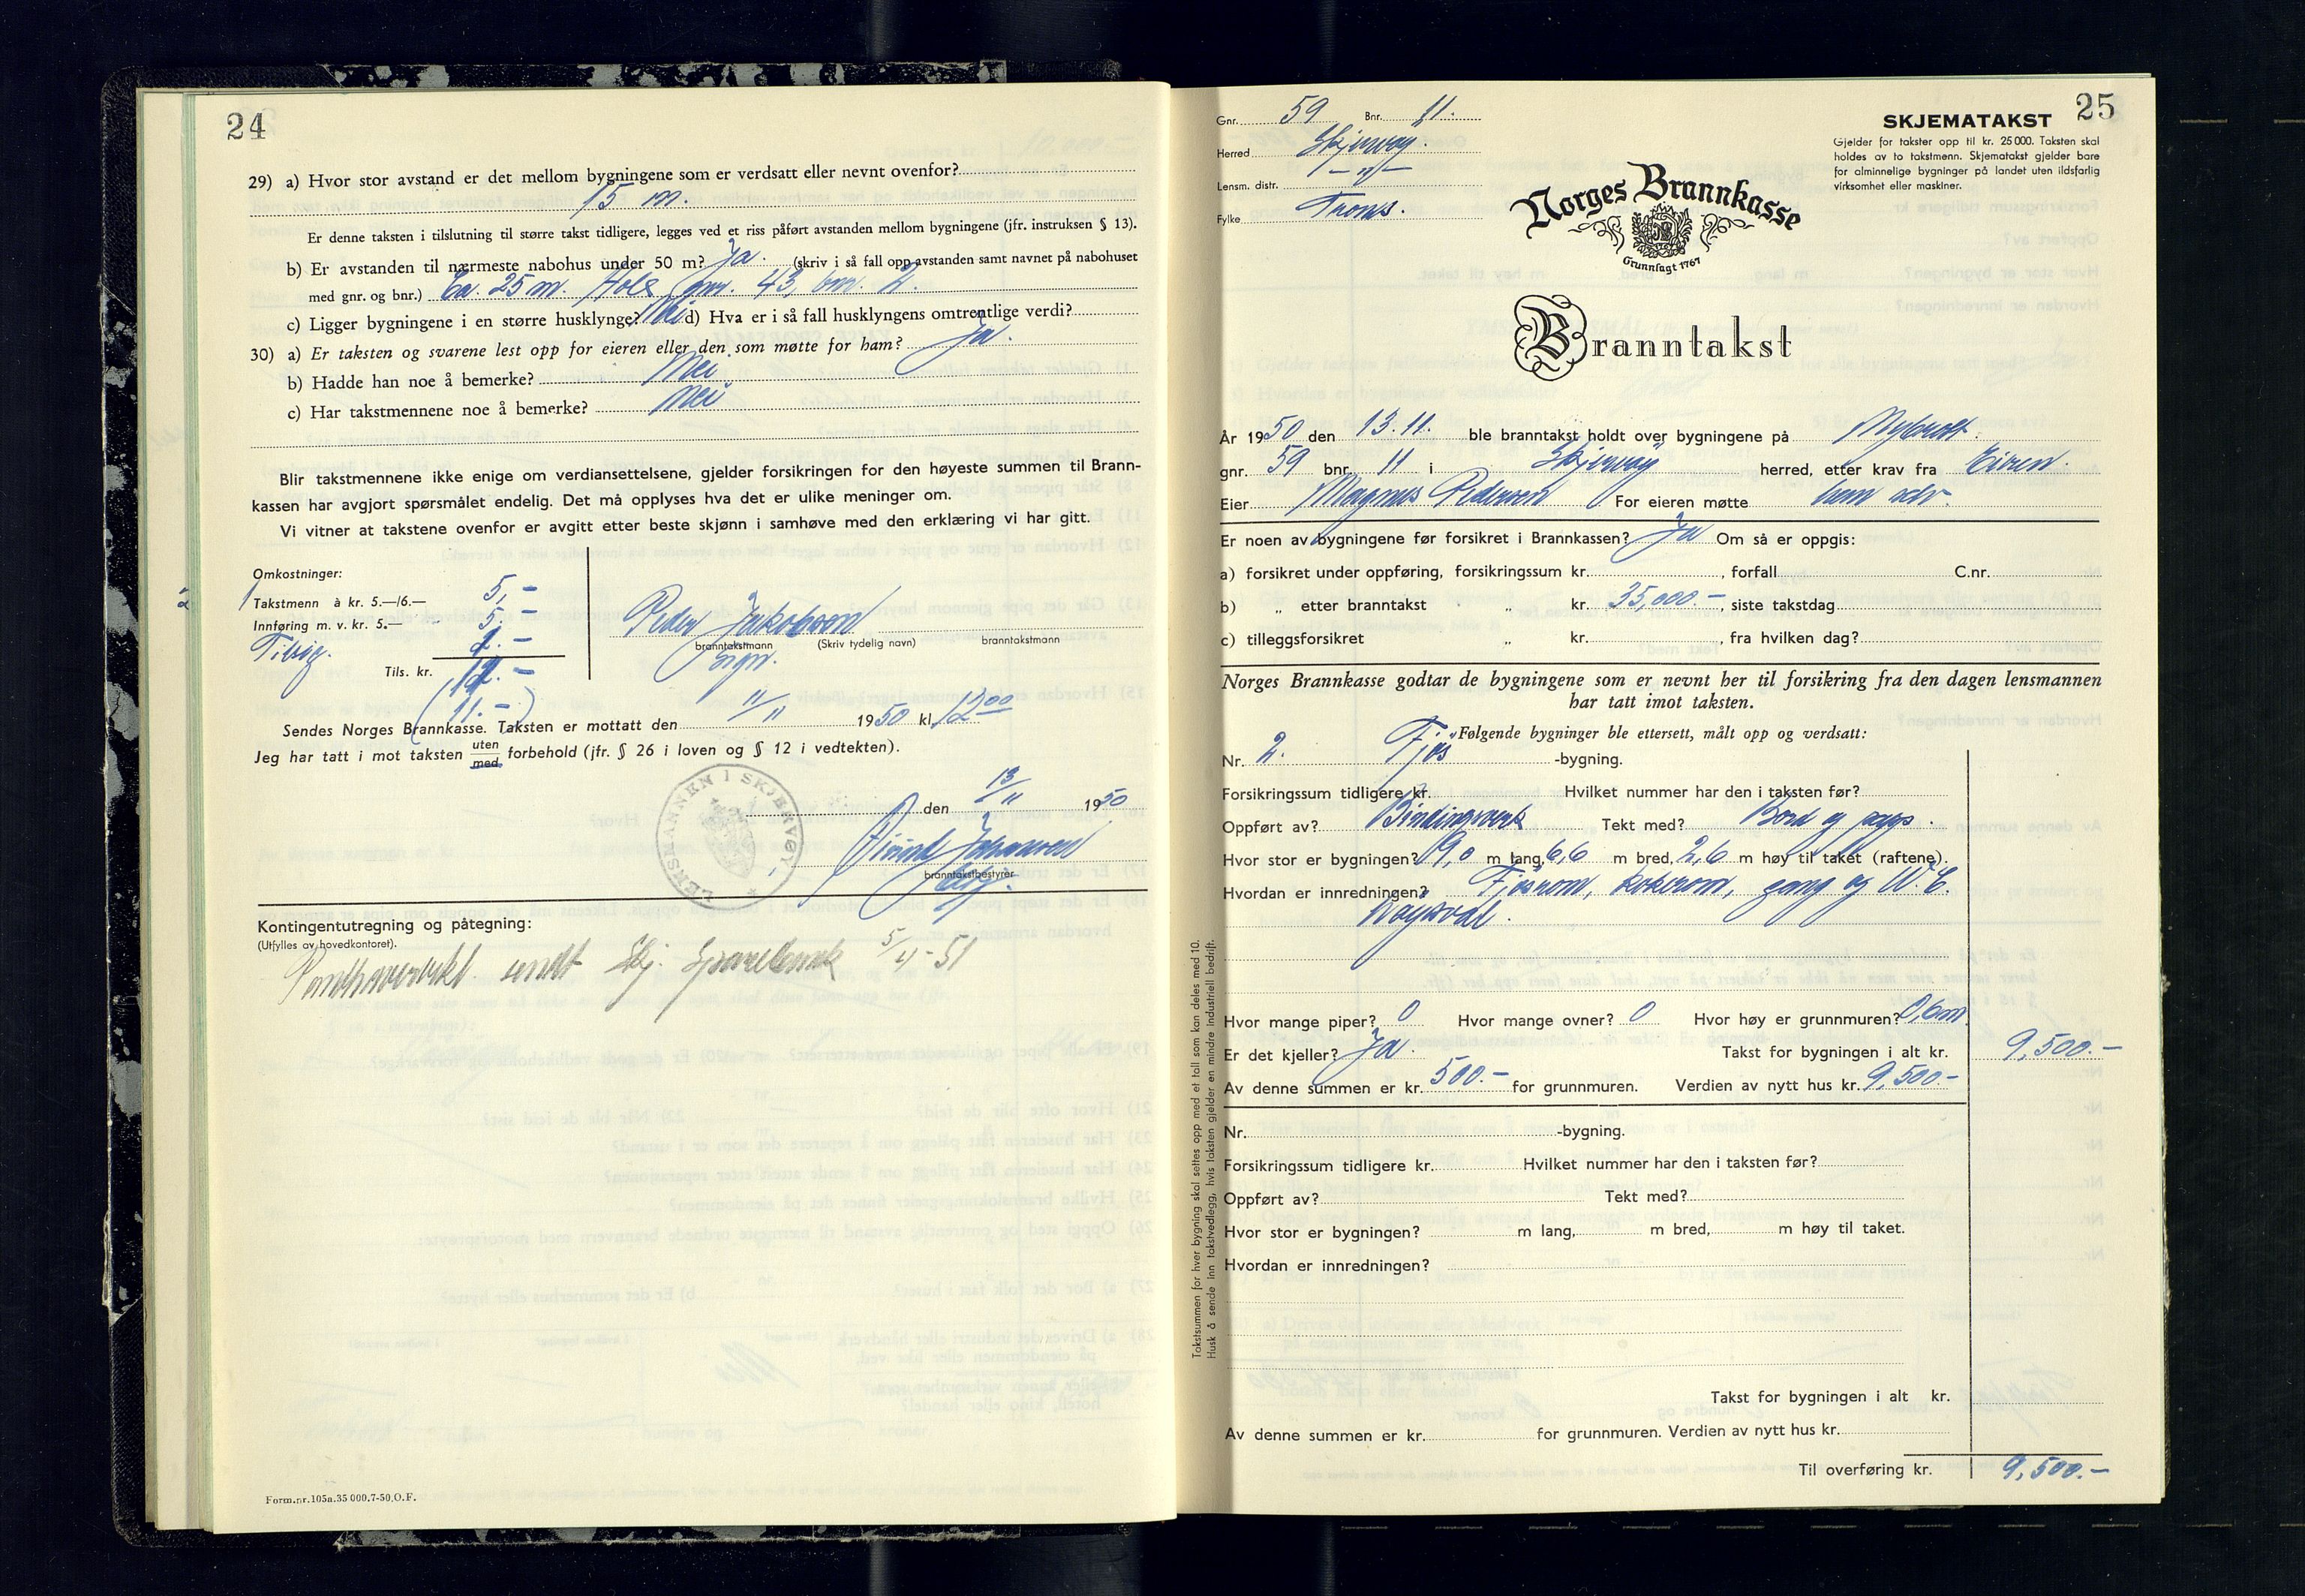 24
29) a) Hvor stor avstand er det mellom bygningene som er verdsatt eller nevnt ovenfor?
15 m.
Er denne taksten i tilslutning til større takst tidligere, legges ved et riss påført avstanden mellom bygningene (jfr. instruksen § 13).
b) Er avstanden til nærmeste nabohus under 50 m? Ja. (skriv i så fall opp avstanden samt navnet på nabohuset
med gnr. og bnr.) Ca. 25 m. Hole gnr. 43, bnr. 2.
c) Ligger bygningene i en større husklynge? Nei d) Hva er i så fall husklyngens omtrentlige verdi?
30) a) Er taksten og svarene lest opp for eieren eller den som møtte for ham? Ja.
b) Hadde han noe å bemerke? Nei
c) Har takstmennene noe å bemerke? Nei
Blir takstmennene ikke enige om verdiansettelsene, gjelder forsikringen for den høyeste summen til Brann-
kassen har avgjort spørsmålet endelig. Det må opplyses hva det er ulike meninger om.
Vi vitner at takstene ovenfor er avgitt etter beste skjønn i samhøve med den erklæring vi har gitt.
Omkostninger:
1 Takstmenn à kr. 5.—/6.— 5,-
Innføring m. v. kr. 5.— 5.-
Tils. kr.
(11.-)
Peder Jakobsen
branntakstmann (Skriv tydelig navn) branntakstmann
sign.
Sendes Norges Brannkasse. Taksten er mottatt den 11/11 1950 kl. 12.00
Jeg har tatt i mot taksten uten/med forbehold (jfr. § 26 i loven og § 12 i vedtekten).
LENSMANNEN I SKJERVØY
den 13/11 1950
Eivind Johansen
branntakstbestyrer
Kontingentutregning og påtegning:
(Utfylles av hovedkontoret).
sendt Skj. Sparebank 5/4-51
Form.nr.105a.35 000.7-50.O.F.
25
Gnr. 59 Bnr. 11.
Herred Skjervøy.
Lensm. distr. -"-
Fylke Troms.
SKJEMATAKST
Gjelder for takster opp til kr. 25 000. Taksten skal
holdes av to takstmenn. Skjematakst gjelder bare
for alminnelige bygninger på landet uten ildsfarlig
virksomhet eller maskiner.
Norges Brannkasse
Grunnlagt 1767
Branntakst
År 1950 den 13.11. ble branntakst holdt over bygningene på Nybrott.
gnr. 59 bnr. 11 i Skjervøy herred, etter krav fra Eieren.
Eier Magnus Pedersen For eieren møtte han selv.
Er noen av bygningene før forsikret i Brannkassen? Ja Om så er oppgis:
a) forsikret under oppføring, forsikringssum kr. , forfall C.nr.
b) „ etter branntakst „ kr. 35,000.- , siste takstdag
c) tilleggsforsikret „ kr. , fra hvilken dag?
Norges Brannkasse godtar de bygningene som er nevnt her til forsikring fra den dagen lensmannen
har tatt imot taksten.
Følgende bygninger ble ettersett, målt opp og verdsatt:
Nr. 2. Fjøs -bygning.
Forsikringssum tidligere kr. Hvilket nummer har den i taksten før?
Oppført av? Bindingsverk Tekt med? Bord og papp.
Hvor stor er bygningen? 9,0 m lang, 6,6 m bred, 2,6 m høy til taket (raftene).
Hvordan er innredningen? Fjøsrom, kokerom, gang og W.C.
Hvor mange piper? 0 Hvor mange ovner? 0 Hvor høy er grunnmuren? 0,6m
Er det kjeller? Ja. Takst for bygningen i alt kr. 9,500.-
Av denne summen er kr. 500.- for grunnmuren. Verdien av nytt hus kr. 9,500.-
Nr. -bygning.
Forsikringssum tidligere kr. Hvilket nummer har den i taksten før?
Oppført av? Tekt med?
Hvor stor er bygningen? m lang, m bred, m høy til taket.
Hvordan er innredningen?
Takst for bygningen i alt kr.
Av denne summen er kr. for grunnmuren. Verdien av nytt hus kr.
Til overføring kr. 9,500.-
Takstsummen for hver bygning skal settes opp med et tall som kan deles med 10.
Husk å sende inn takstvedlegg, hvis taksten gjelder en mindre industriell bedrift.